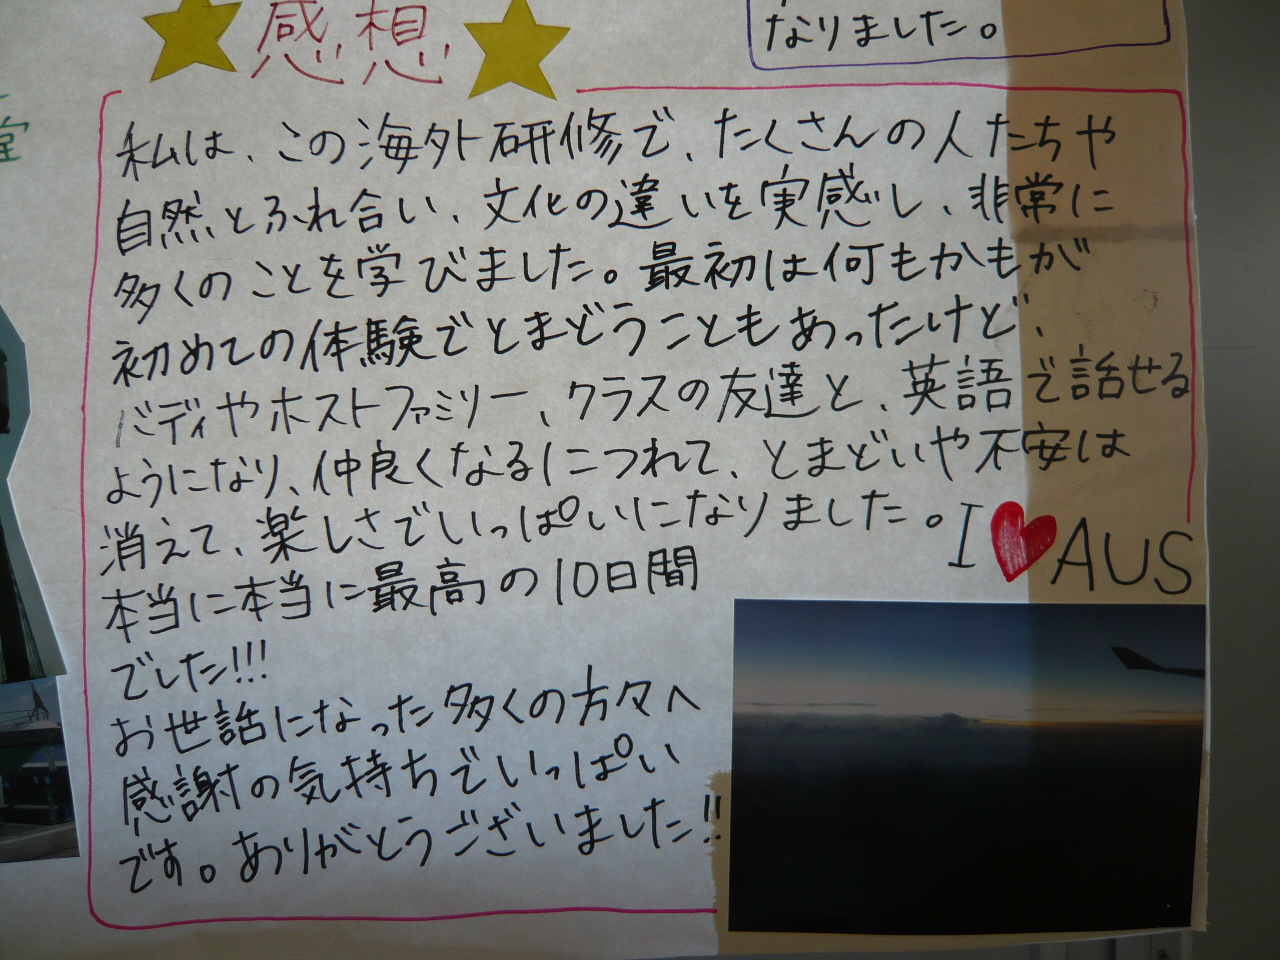 なりました。
感想
堂
私は、この海外研修で、たくさんの人たちや
自然とふれ合い、文化の違いを実感し、非常に
多くのことを学びました。最初は何もかもが
初めての体験でとまどうこともあったけど、
バディやホストファミリー、クラスの友達と、英語で話せる
ようになり、仲良くなるにつれて、とまどいや不安は
消えて、楽しさでいっぱいになりました。
I ♥ AUS
本当に本当に最高の10日間
でした!!!
お世話になった多くの方々へ
感謝の気持ちでいっぱい
です。ありがとうございました!!